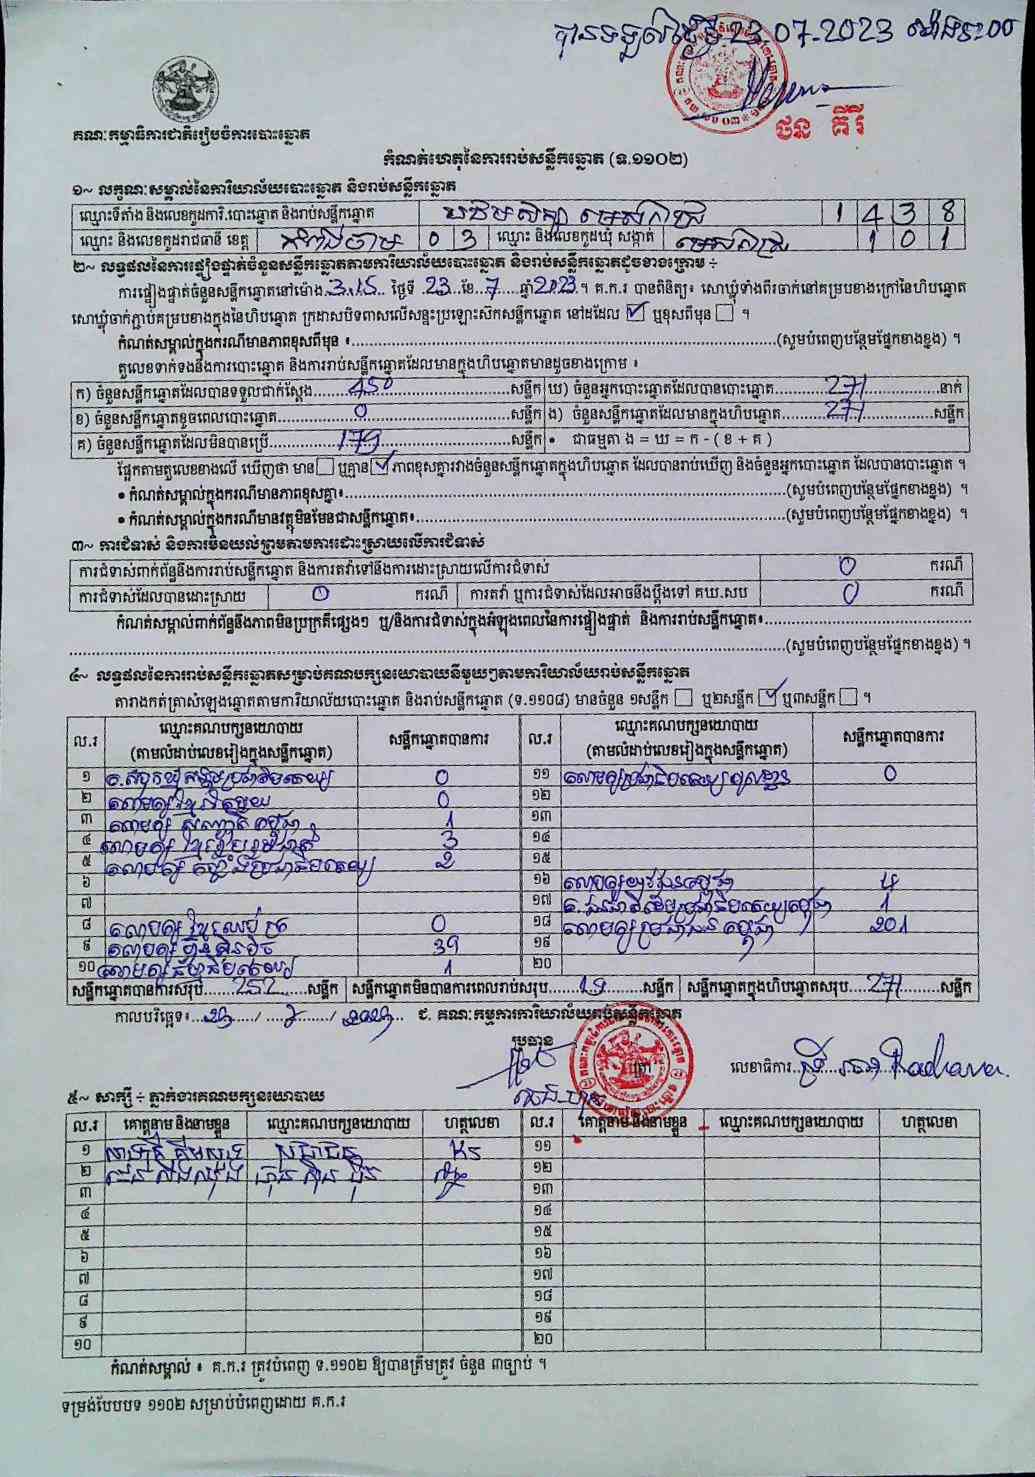 បានទទួលថ្ងៃទី 23.07.2023 ម៉ោង
ជន គីរី
គណៈកម្មាធិការជាតិរៀបចំការបោះឆ្នោត
កំណត់ហេតុនៃការរាប់សន្លឹកឆ្នោត (ទ.១១០២)
១~ លក្ខណៈសម្គាល់នៃការិយាល័យបោះឆ្នោត និងរាប់សន្លឹកឆ្នោត
ឈ្មោះទីតាំង និងលេខកូដការិ.បោះឆ្នោត និងរាប់សន្លឹកឆ្នោត បឋមសិក្សា 1 4 3 8
ឈ្មោះ និងលេខកូដរាជធានី ខេត្ត កំពង់ចាម 0 3 ឈ្មោះ និងលេខកូដឃុំ សង្កាត់ 1 0 1
២~ លទ្ធផលនៃការផ្ទៀងផ្ទាត់ចំនួនសន្លឹកឆ្នោតតាមការិយាល័យបោះឆ្នោត និងរាប់សន្លឹកឆ្នោតដូចខាងក្រោម ÷
ការផ្ទៀងផ្ទាត់ចំនួនសន្លឹកឆ្នោតនៅម៉ោង 3:15 ថ្ងៃទី 23 ខែ 7 ឆ្នាំ 2023 ។ គ.ក.រ បានពិនិត្យ៖ សោឃ្លុំទាំងពីរចាក់នៅគម្របខាងក្រៅនៃហិបឆ្នោត
សោឃ្លុំចាក់ភ្ជាប់គម្របខាងក្នុងនៃហិបឆ្នោត ក្រដាសបិទពាសលើសន្ទះប្រឡោះសិកសន្លឹកឆ្នោត នៅដដែល ☑ ឬខុសពីមុន ☐ ។
កំណត់សម្គាល់ក្នុងករណីមានភាពខុសពីមុន ៖ (សូមបំពេញបន្ថែមផ្នែកខាងខ្នង) ។
តួលេខទាក់ទងនឹងការបោះឆ្នោត និងការរាប់សន្លឹកឆ្នោតដែលមានក្នុងហិបឆ្នោតមានដូចខាងក្រោម ៖
ក) ចំនួនសន្លឹកឆ្នោតដែលបានទទួលជាក់ស្តែង 450 សន្លឹក ឃ) ចំនួនអ្នកបោះឆ្នោតដែលបានបោះឆ្នោត 271 នាក់
ខ) ចំនួនសន្លឹកឆ្នោតខូចពេលបោះឆ្នោត 0 សន្លឹក ង) ចំនួនសន្លឹកឆ្នោតដែលមានក្នុងហិបឆ្នោត 271 សន្លឹក
គ) ចំនួនសន្លឹកឆ្នោតដែលមិនបានប្រើ 179 សន្លឹក • ជាធម្មតា ង = ឃ = ក - ( ខ + គ )
ផ្អែកតាមតួលេខខាងលើ ឃើញថា មាន ☐ ឬគ្មាន ☑ ភាពខុសគ្នារវាងចំនួនសន្លឹកឆ្នោតក្នុងហិបឆ្នោត ដែលបានរាប់ឃើញ និងចំនួនអ្នកបោះឆ្នោត ដែលបានបោះឆ្នោត ។
• កំណត់សម្គាល់ក្នុងករណីមានភាពខុសគ្នា៖ (សូមបំពេញបន្ថែមផ្នែកខាងខ្នង) ។
• កំណត់សម្គាល់ក្នុងករណីមានវត្ថុមិនមែនជាសន្លឹកឆ្នោត៖ (សូមបំពេញបន្ថែមផ្នែកខាងខ្នង) ។
៣~ ការជំទាស់ និងការមិនយល់ព្រមតាមការដោះស្រាយលើការជំទាស់
ការជំទាស់ពាក់ព័ន្ធនឹងការរាប់សន្លឹកឆ្នោត និងការតវ៉ាទៅនឹងការដោះស្រាយលើការជំទាស់ 0 ករណី
ការជំទាស់ដែលបានដោះស្រាយ 0 ករណី ការតវ៉ា ឬការជំទាស់ដែលអាចនឹងប្តឹងទៅ គឃ.សប 0 ករណី
កំណត់សម្គាល់ពាក់ព័ន្ធនឹងភាពមិនប្រក្រតីផ្សេងៗ ឬ/និងការជំទាស់ក្នុងអំឡុងពេលនៃការផ្ទៀងផ្ទាត់ និងការរាប់សន្លឹកឆ្នោត៖
(សូមបំពេញបន្ថែមផ្នែកខាងខ្នង) ។
៤~ លទ្ធផលនៃការរាប់សន្លឹកឆ្នោតសម្រាប់គណបក្សនយោបាយនីមួយៗតាមការិយាល័យរាប់សន្លឹកឆ្នោត
តារាងកត់ត្រាសំឡេងឆ្នោតតាមការិយាល័យបោះឆ្នោត និងរាប់សន្លឹកឆ្នោត (ទ.១១០៨) មានចំនួន ១សន្លឹក ☐ ឬ២សន្លឹក ☑ ឬ៣សន្លឹក ☐ ។
ល.រ ឈ្មោះគណបក្សនយោបាយ (តាមលំដាប់លេខរៀងក្នុងសន្លឹកឆ្នោត) សន្លឹកឆ្នោតបានការ ល.រ ឈ្មោះគណបក្សនយោបាយ (តាមលំដាប់លេខរៀងក្នុងសន្លឹកឆ្នោត) សន្លឹកឆ្នោតបានការ
១ 0 ១១ 0
២ គណបក្ស ខ្មែររួបរួម 0 ១២
៣ គណបក្ស សញ្ជាតិកម្ពុជា 1 ១៣
៤ 3 ១៤
៥ 2 ១៥
៦ ១៦ គណបក្សយុវជនកម្ពុជា 4
៧ ១៧ 1
៨ 0 ១៨ គណបក្សប្រជាជនកម្ពុជា 201
៩ គណបក្ស ហ៊្វុនស៊ិនប៉ិច 39 ១៩
១០ គណបក្សធម្មាធិបតេយ្យ 1 ២០
សន្លឹកឆ្នោតបានការសរុប 252 សន្លឹក សន្លឹកឆ្នោតមិនបានការពេលរាប់សរុប 19 សន្លឹក សន្លឹកឆ្នោតក្នុងហិបឆ្នោតសរុប 271 សន្លឹក
កាលបរិច្ឆេទ៖ 23 / 7 / 2023 ជ. គណៈកម្មការការិយាល័យរាប់សន្លឹកឆ្នោត
ប្រធាន
លេខាធិការ
៥~ សាក្សី ÷ ភ្នាក់ងារគណបក្សនយោបាយ
ល.រ គោត្តនាម និងនាមខ្លួន ឈ្មោះគណបក្សនយោបាយ ហត្ថលេខា ល.រ គោត្តនាម និងនាមខ្លួន ឈ្មោះគណបក្សនយោបាយ ហត្ថលេខា
១ ប្រជាជន ១១
២ ហ៊្វុនស៊ិនប៉ិច ១២
៣ ១៣
៤ ១៤
៥ ១៥
៦ ១៦
៧ ១៧
៨ ១៨
៩ ១៩
១០ ២០
កំណត់សម្គាល់ ៖ គ.ក.រ ត្រូវបំពេញ ទ.១១០២ ឱ្យបានត្រឹមត្រូវ ចំនួន ៣ច្បាប់ ។
ទម្រង់បែបបទ ១១០២ សម្រាប់បំពេញដោយ គ.ក.រ